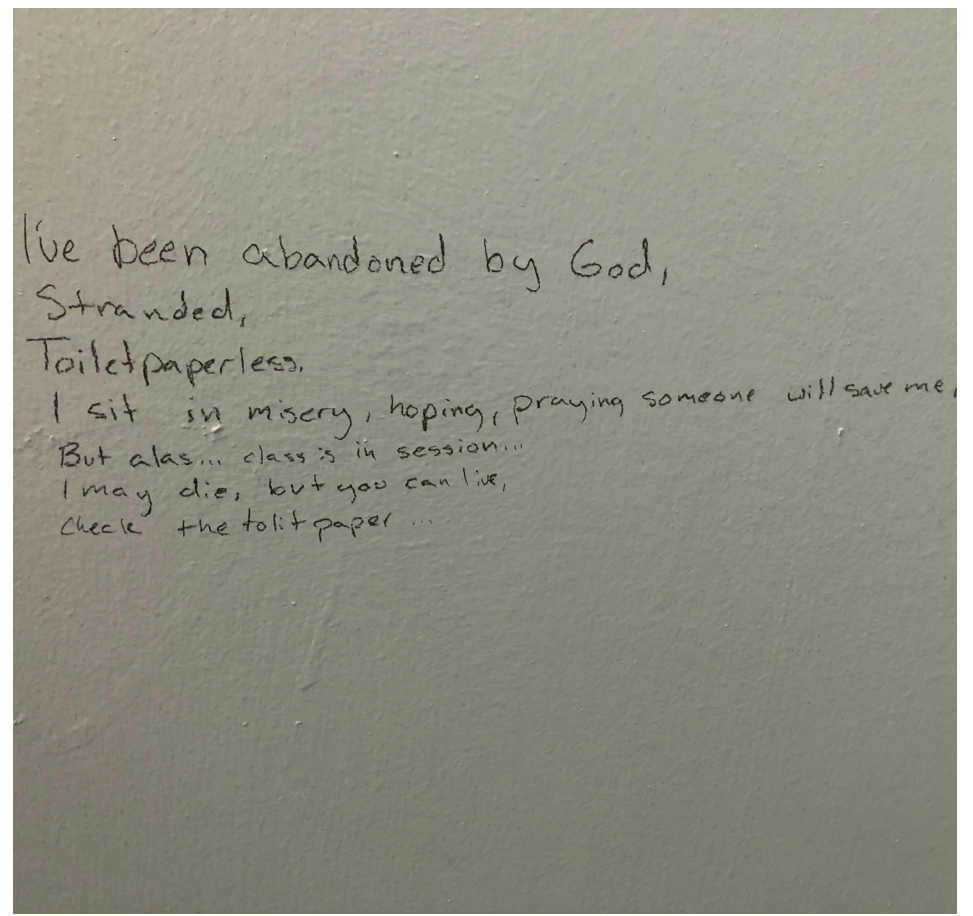 I've been abandoned by God,
Stranded,
Toiletpaperless.
I sit in misery, hoping, praying someone will save me,
But alas... class is in session...
I may die, but you can live,
check the tolit paper ...